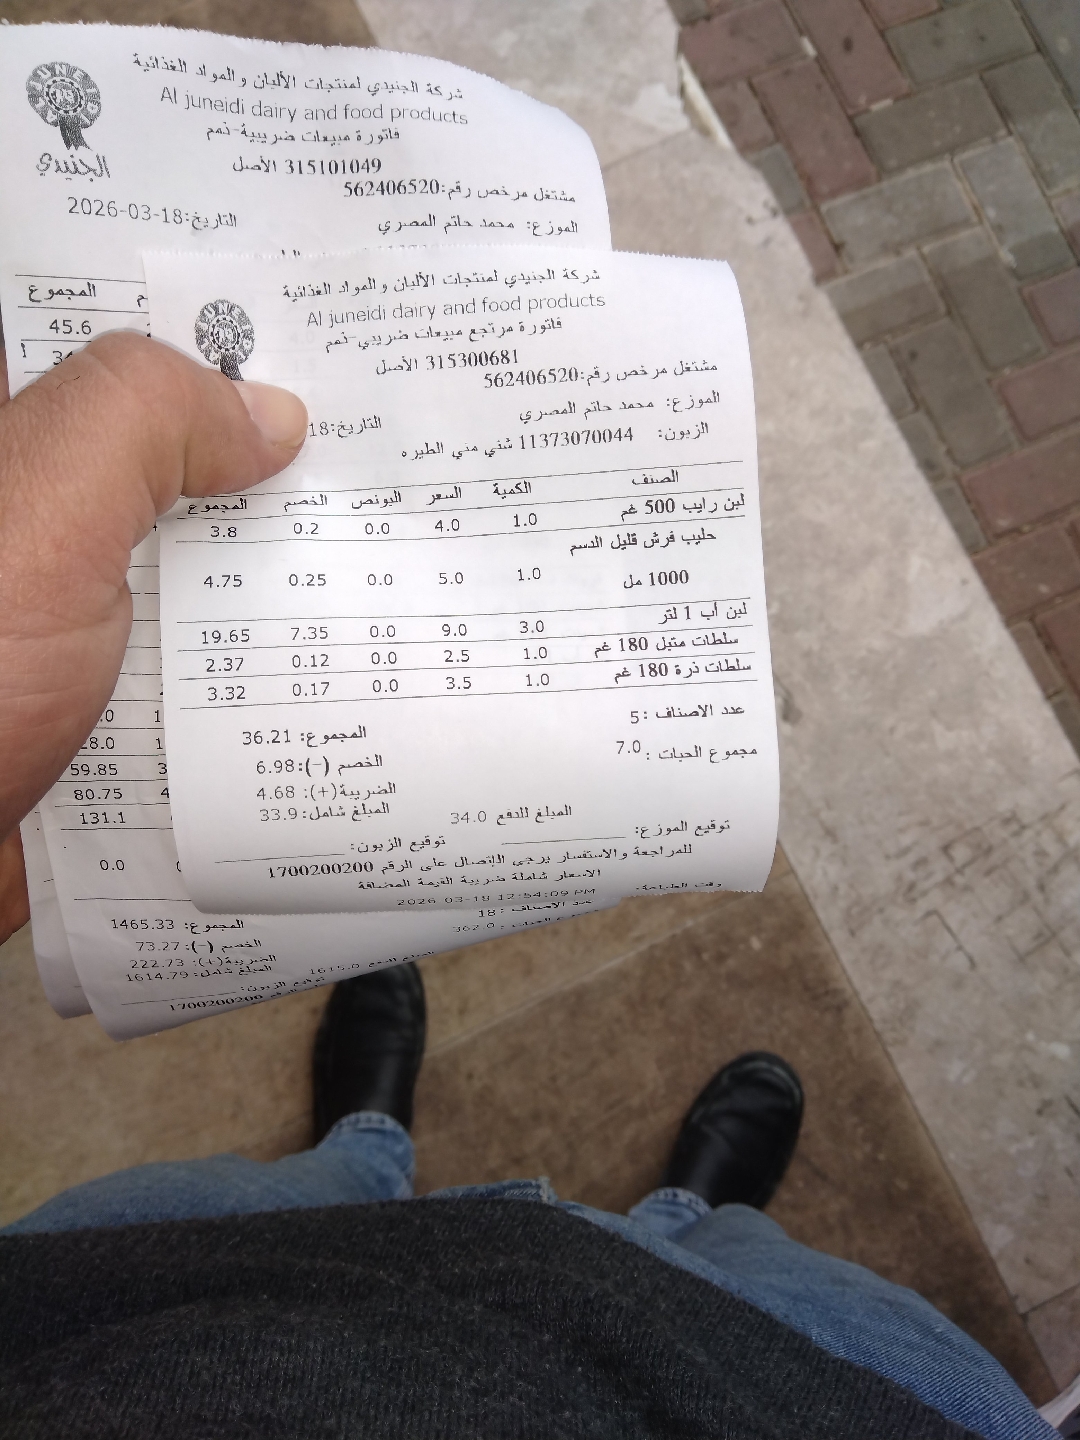 شركة الجنيدي لمنتجات الألبان و المواد الغذائية
Al juneidi dairy and food products
فاتورة مبيعات ضريبية-ذمم
315101049 الأصل
مشتغل مرخص رقم:562406520
الجنيدي
التاريخ:2026-03-18
الموزع: محمد حاتم المصري
المجموع
45.6
شركة الجنيدي لمنتجات الألبان و المواد الغذائية
Al juneidi dairy and food products
فاتورة مرتجع مبيعات ضريبي-ذمم
315300681 الأصل
مشتغل مرخص رقم:562406520
الموزع: محمد حاتم المصري
التاريخ:18
الزبون: 11373070044 شني مني الطيره
الصنف الكمية السعر البونص الخصم المجموع
لبن رايب 500 غم 1.0 4.0 0.0 0.2 3.8
حليب فرش قليل الدسم
1000 مل 1.0 5.0 0.0 0.25 4.75
لبن أب 1 لتر 3.0 9.0 0.0 7.35 19.65
سلطات متبل 180 غم 1.0 2.5 0.0 0.12 2.37
سلطات ذرة 180 غم 1.0 3.5 0.0 0.17 3.32
عدد الاصناف :5
المجموع: 36.21
مجموع الحبات : 7.0
الخصم (-):6.98
الضريبة(+): 4.68
المبلغ شامل: 33.9
المبلغ للدفع 34.0
توقيع الموزع:
توقيع الزبون:
للمراجعة والاستفسار يرجى الإتصال على الرقم 1700200200
الاسعار شاملة ضريبة القيمة المضافة
وقت الطباعة: 2026-03-18 12:54:09 PM
59.85
80.75
131.1
0.0
عدد الاصناف :18
المجموع: 1465.33
الخصم (-): 73.27
الضريبة(+): 222.73
المبلغ شامل: 1614.79
المبلغ للدفع 1615.0
توقيع الزبون:
1700200200